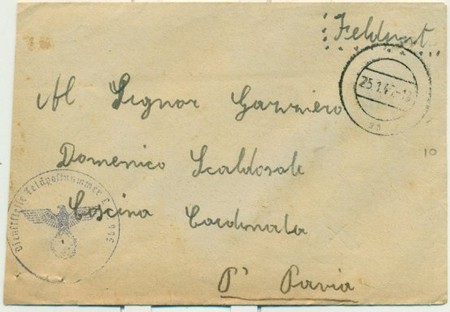 Feldpost
25.1.4
Al Signor
Domenico Scaldasole
Cascina Cardinala
P' Pavia
Dienststelle Feldpostnummer
10